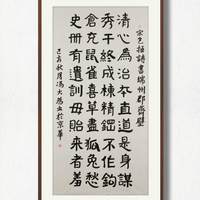 宋包拯詩書端州郡齋壁
清心為治本直道是身謀
秀干終成棟精鋼不作鈎
倉充鼠雀喜草盡狐兔愁
史冊有遺訓毋貽來者羞
己亥秋月馮大於京華